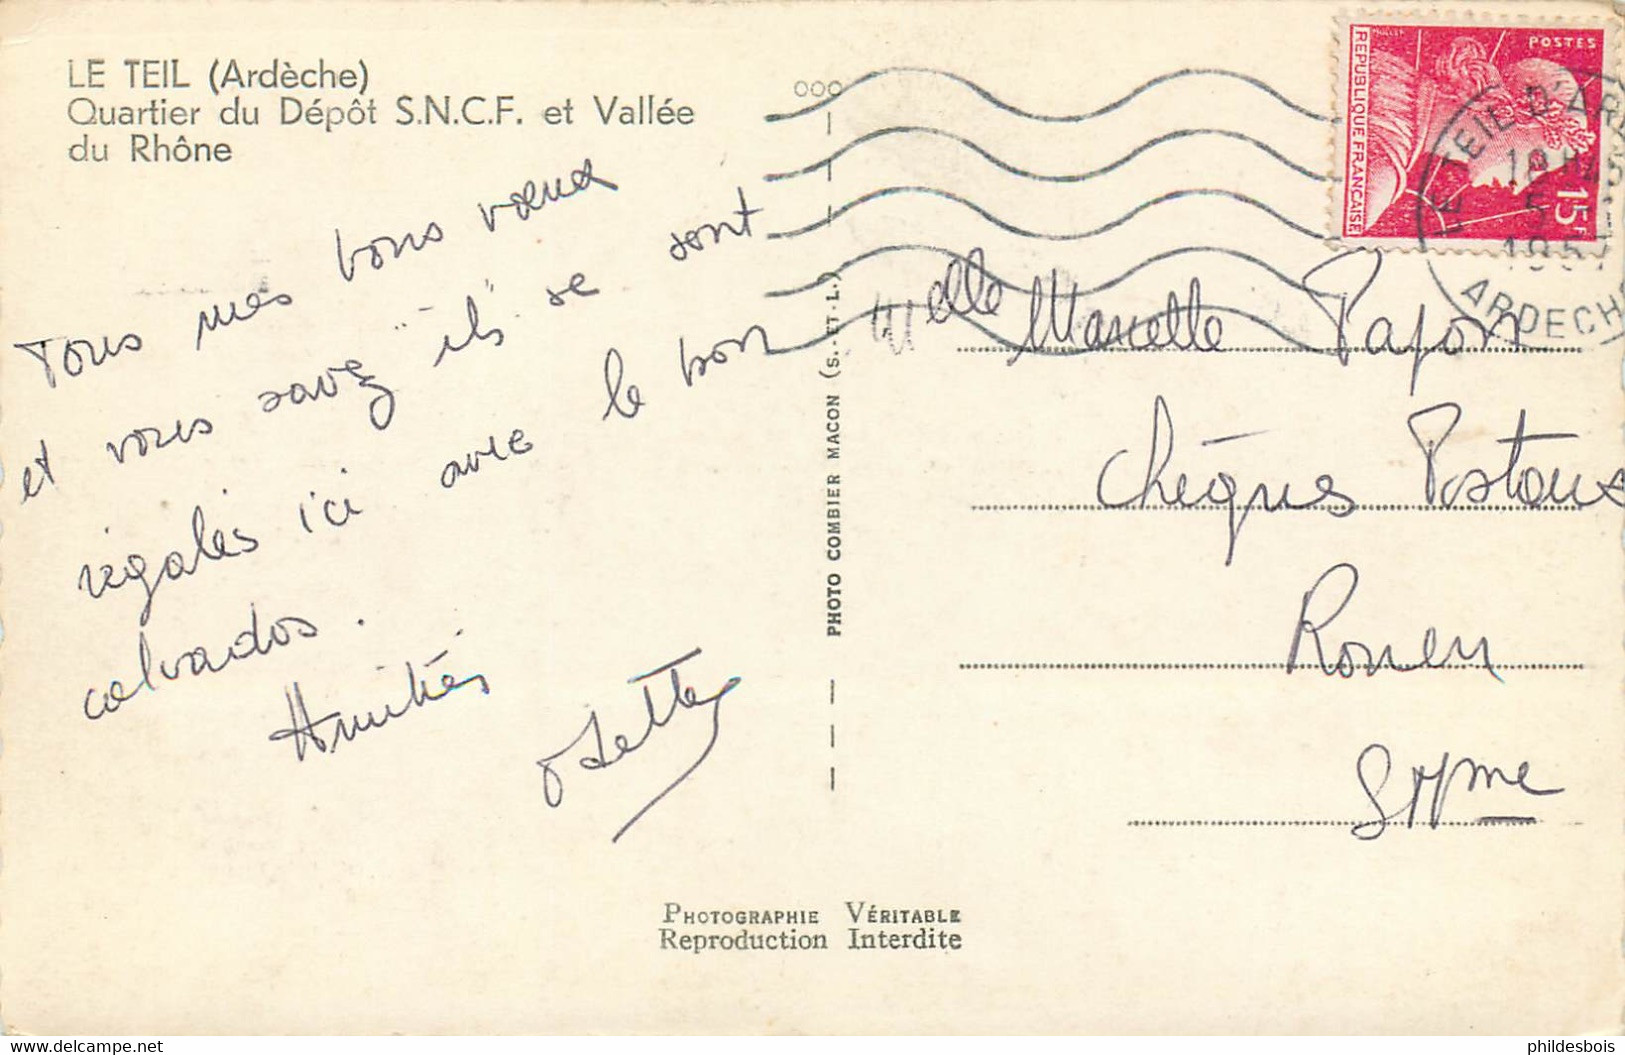 LE TEIL (Ardèche)
Quartier du Dépôt S.N.C.F. et Vallée
du Rhône
Tous mes bons vœux
et vous savez "ils" se sont
régalés ici avec le bon
calvados.
Amitiés
Odette
PHOTO COMBIER MACON (S.-ET-L.)
REPUBLIQUE FRANÇAISE
MULLER
POSTES
15F
LE TEIL D'ARD
ARDECH
Melle Marcelle Papon
Chèques Postaux
Rouen
Sppme
PHOTOGRAPHIE VÉRITABLE
Reproduction Interdite
http://www.delcampe.net
phildesbois